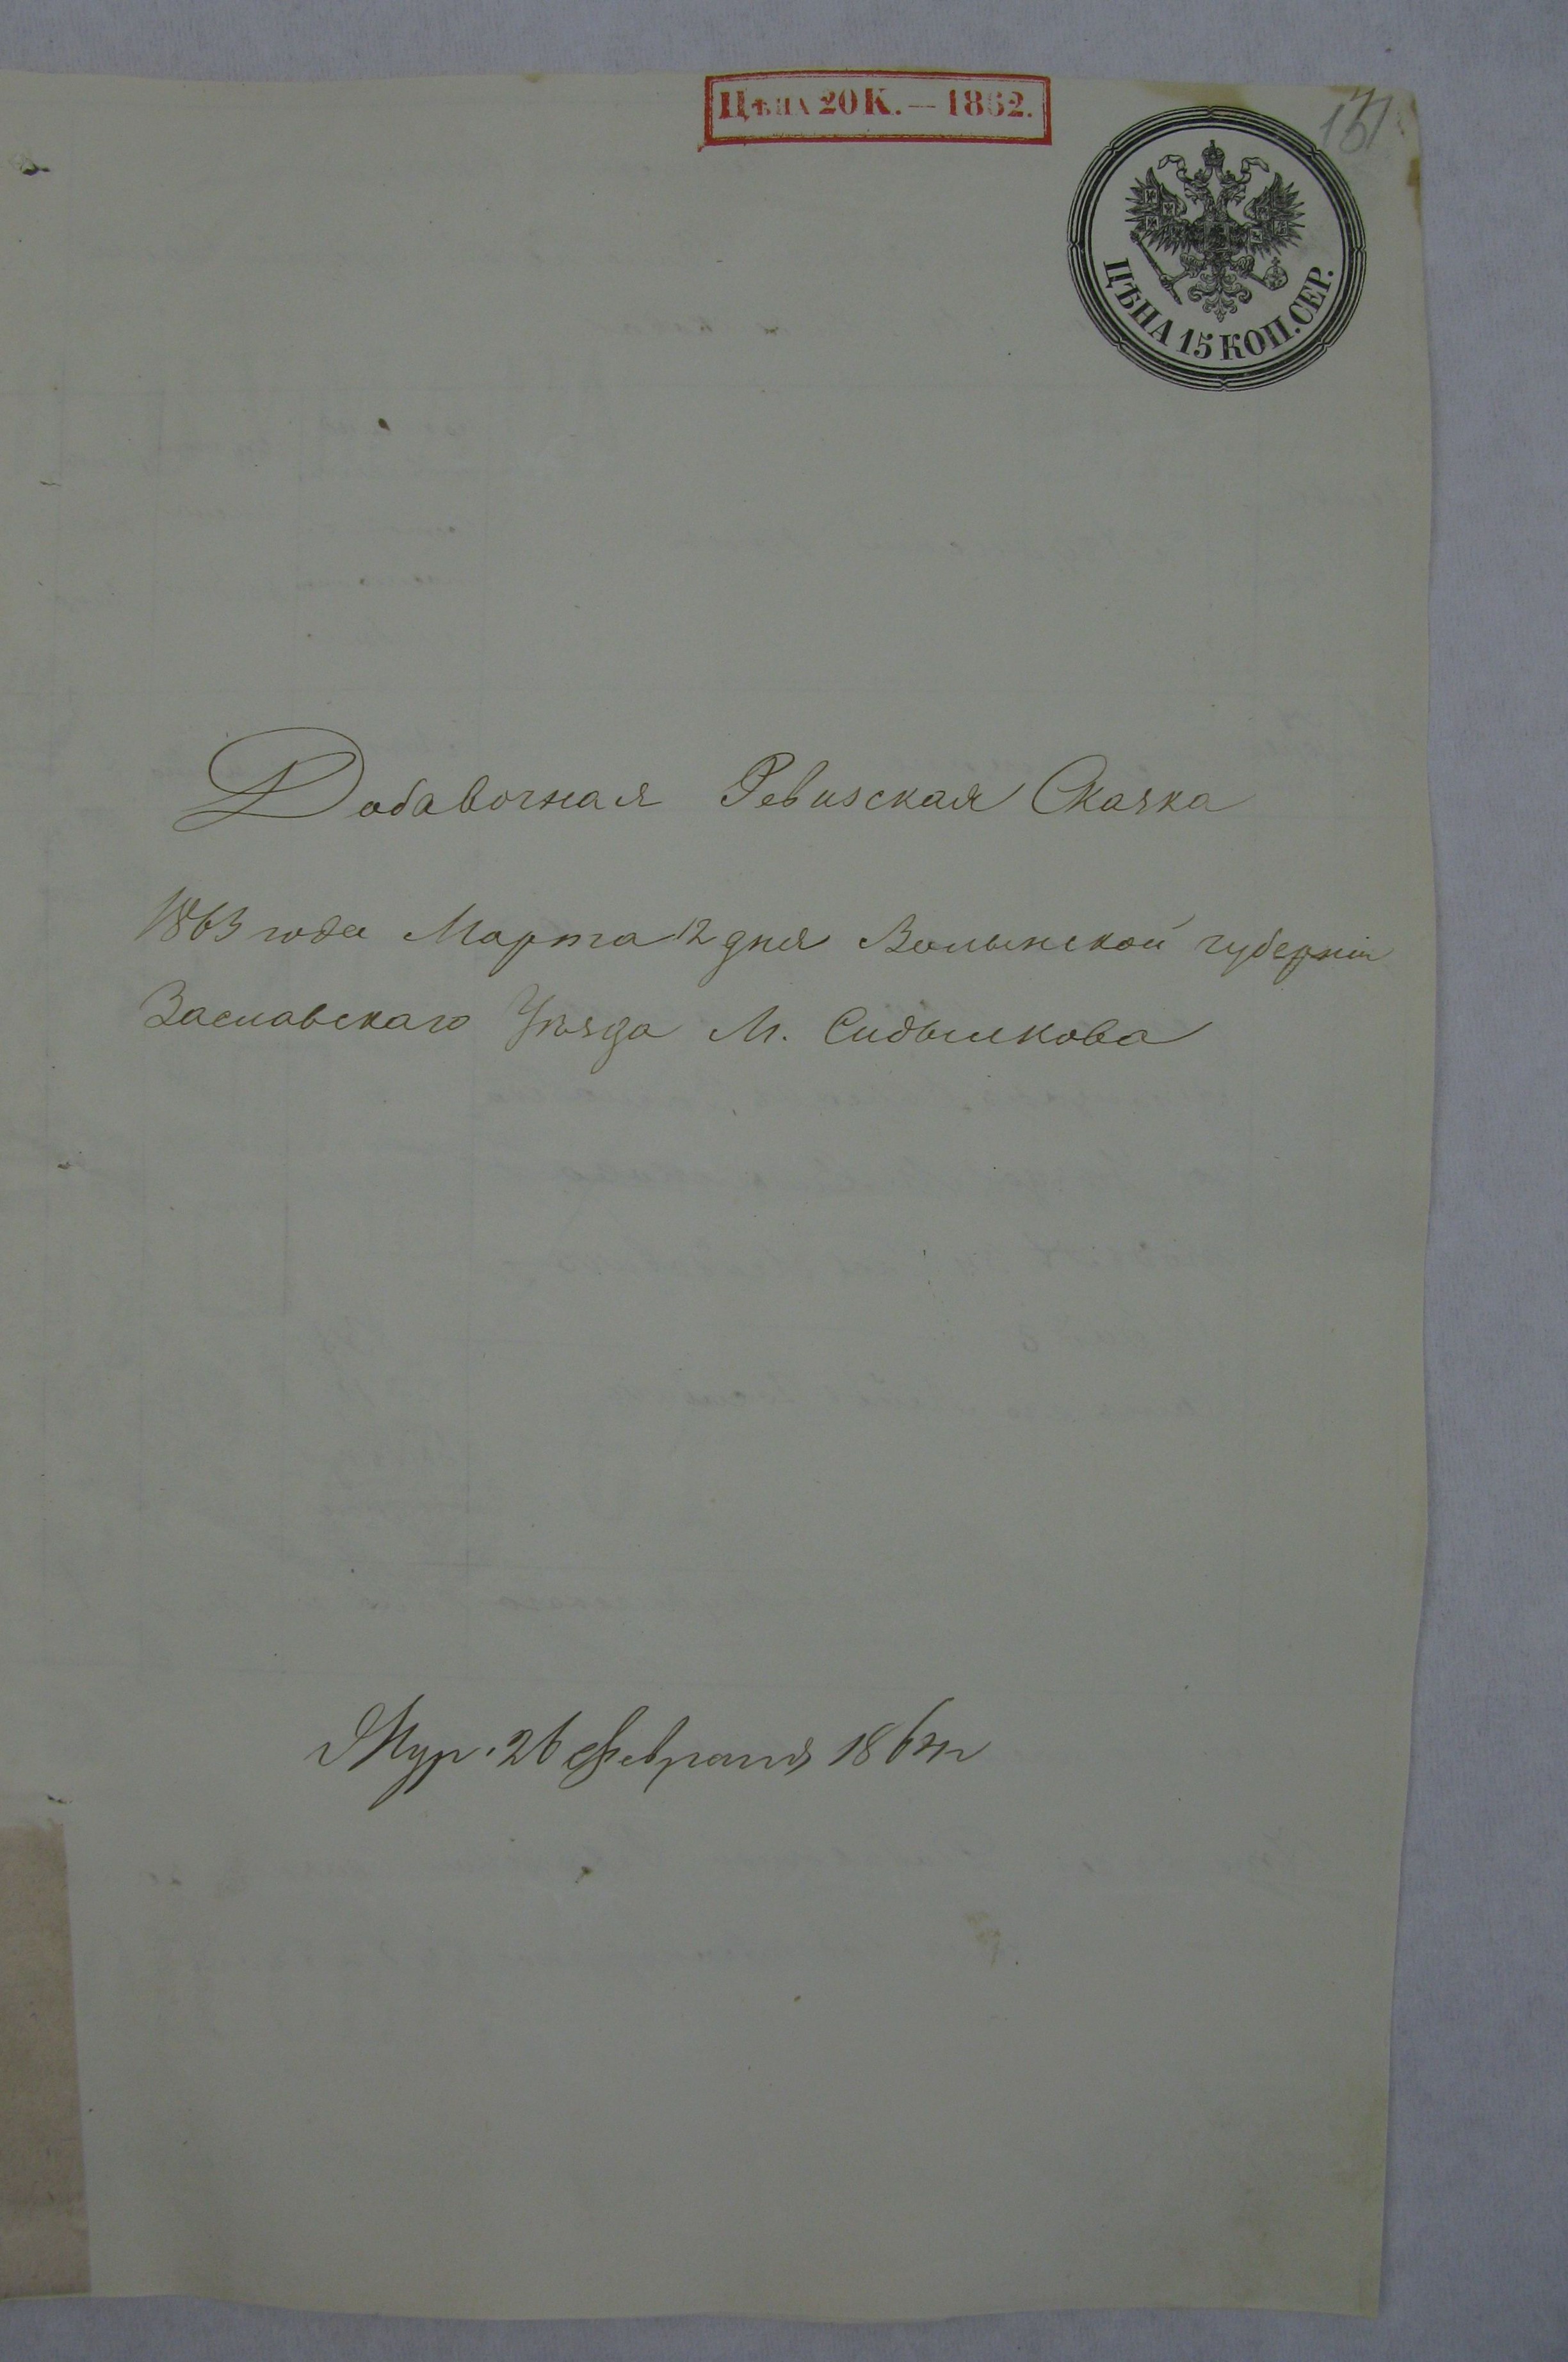 Цѣна 20 К. — 1862.
ЦѢНА 15 КОП. СЕР.
Добавочная Ревизская Сказка
1863 года Марта 12 дня Волынской губерніи
Заславскаго Уѣзда М. Судылкова
26 Февраля